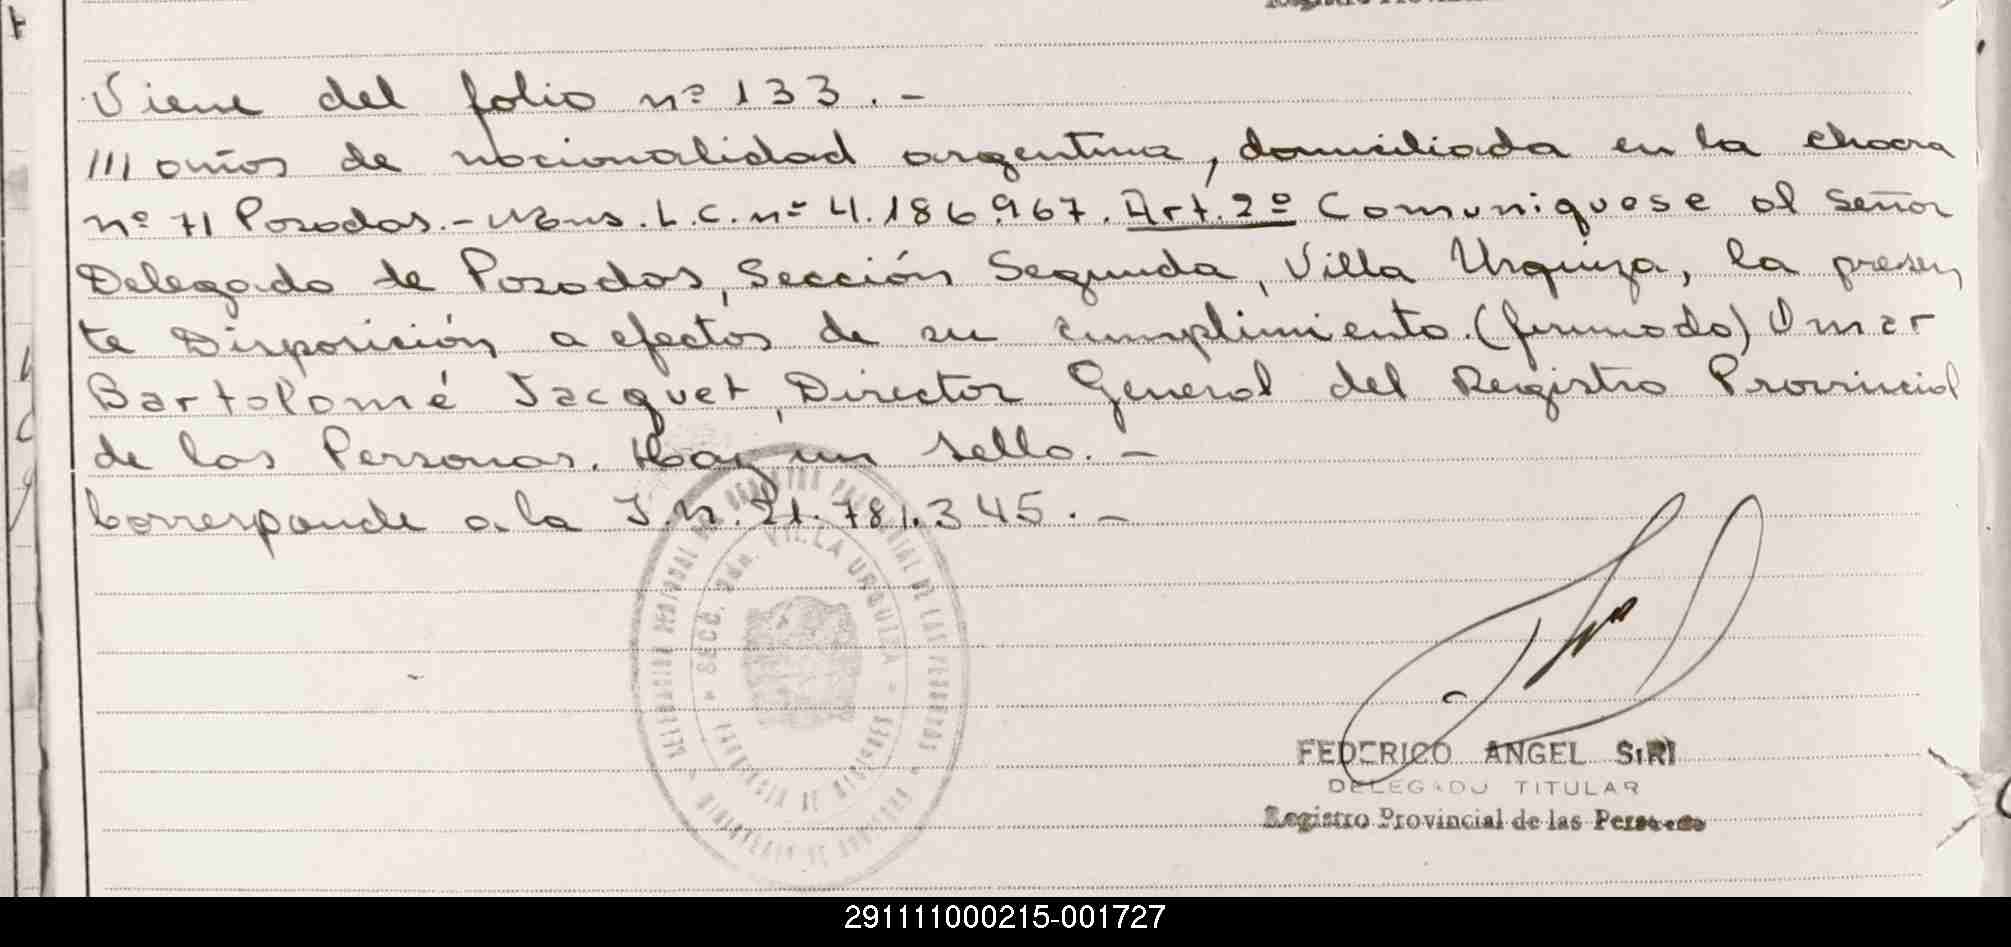 Viene del folio nº 133.-
/// años de nacionalidad argentina, domiciliada en la chacra
nº 71 Posadas.- Mns. L.C. nº 4.186.967. Art. 2º Comuniquese al Señor
Delegado de Posadas, Sección Segunda, Villa Urquiza, la presen
te Disposición a efectos de su cumplimiento. (firmado) Omar
Bartolomé Jacquet, Director General del Registro Provincial
de las Personas. Hay un sello.-
Corresponde a la I.N. 21.781.345.-
VILLA URQUIZA
FEDERICO ANGEL SIRI
DELEGADO TITULAR
Registro Provincial de las Personas
291111000215-001727